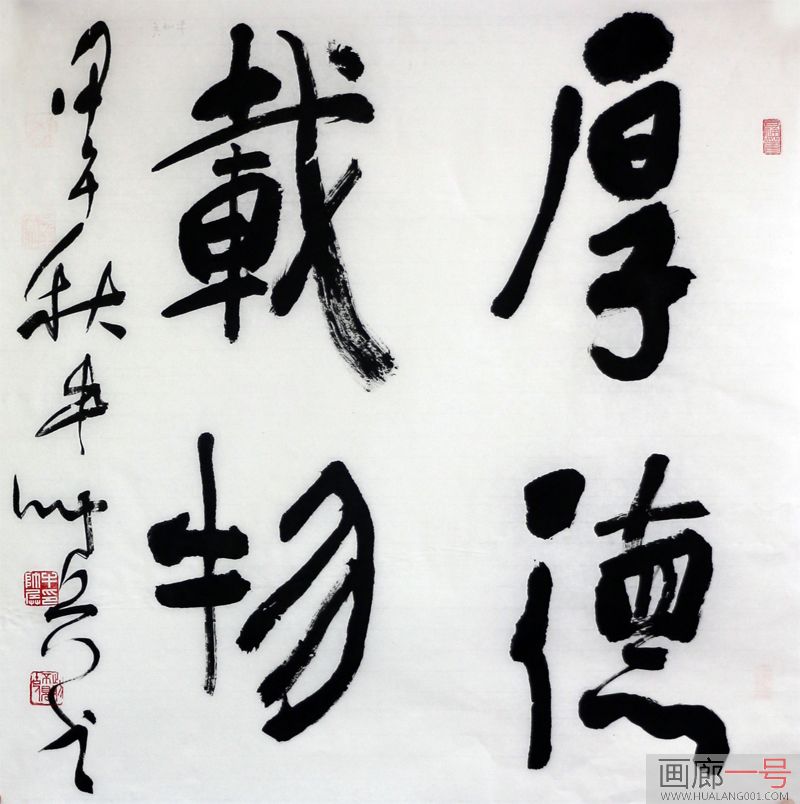 厚德
載物
甲午秋牛
画廊一号
WWW.HUALANG001.COM